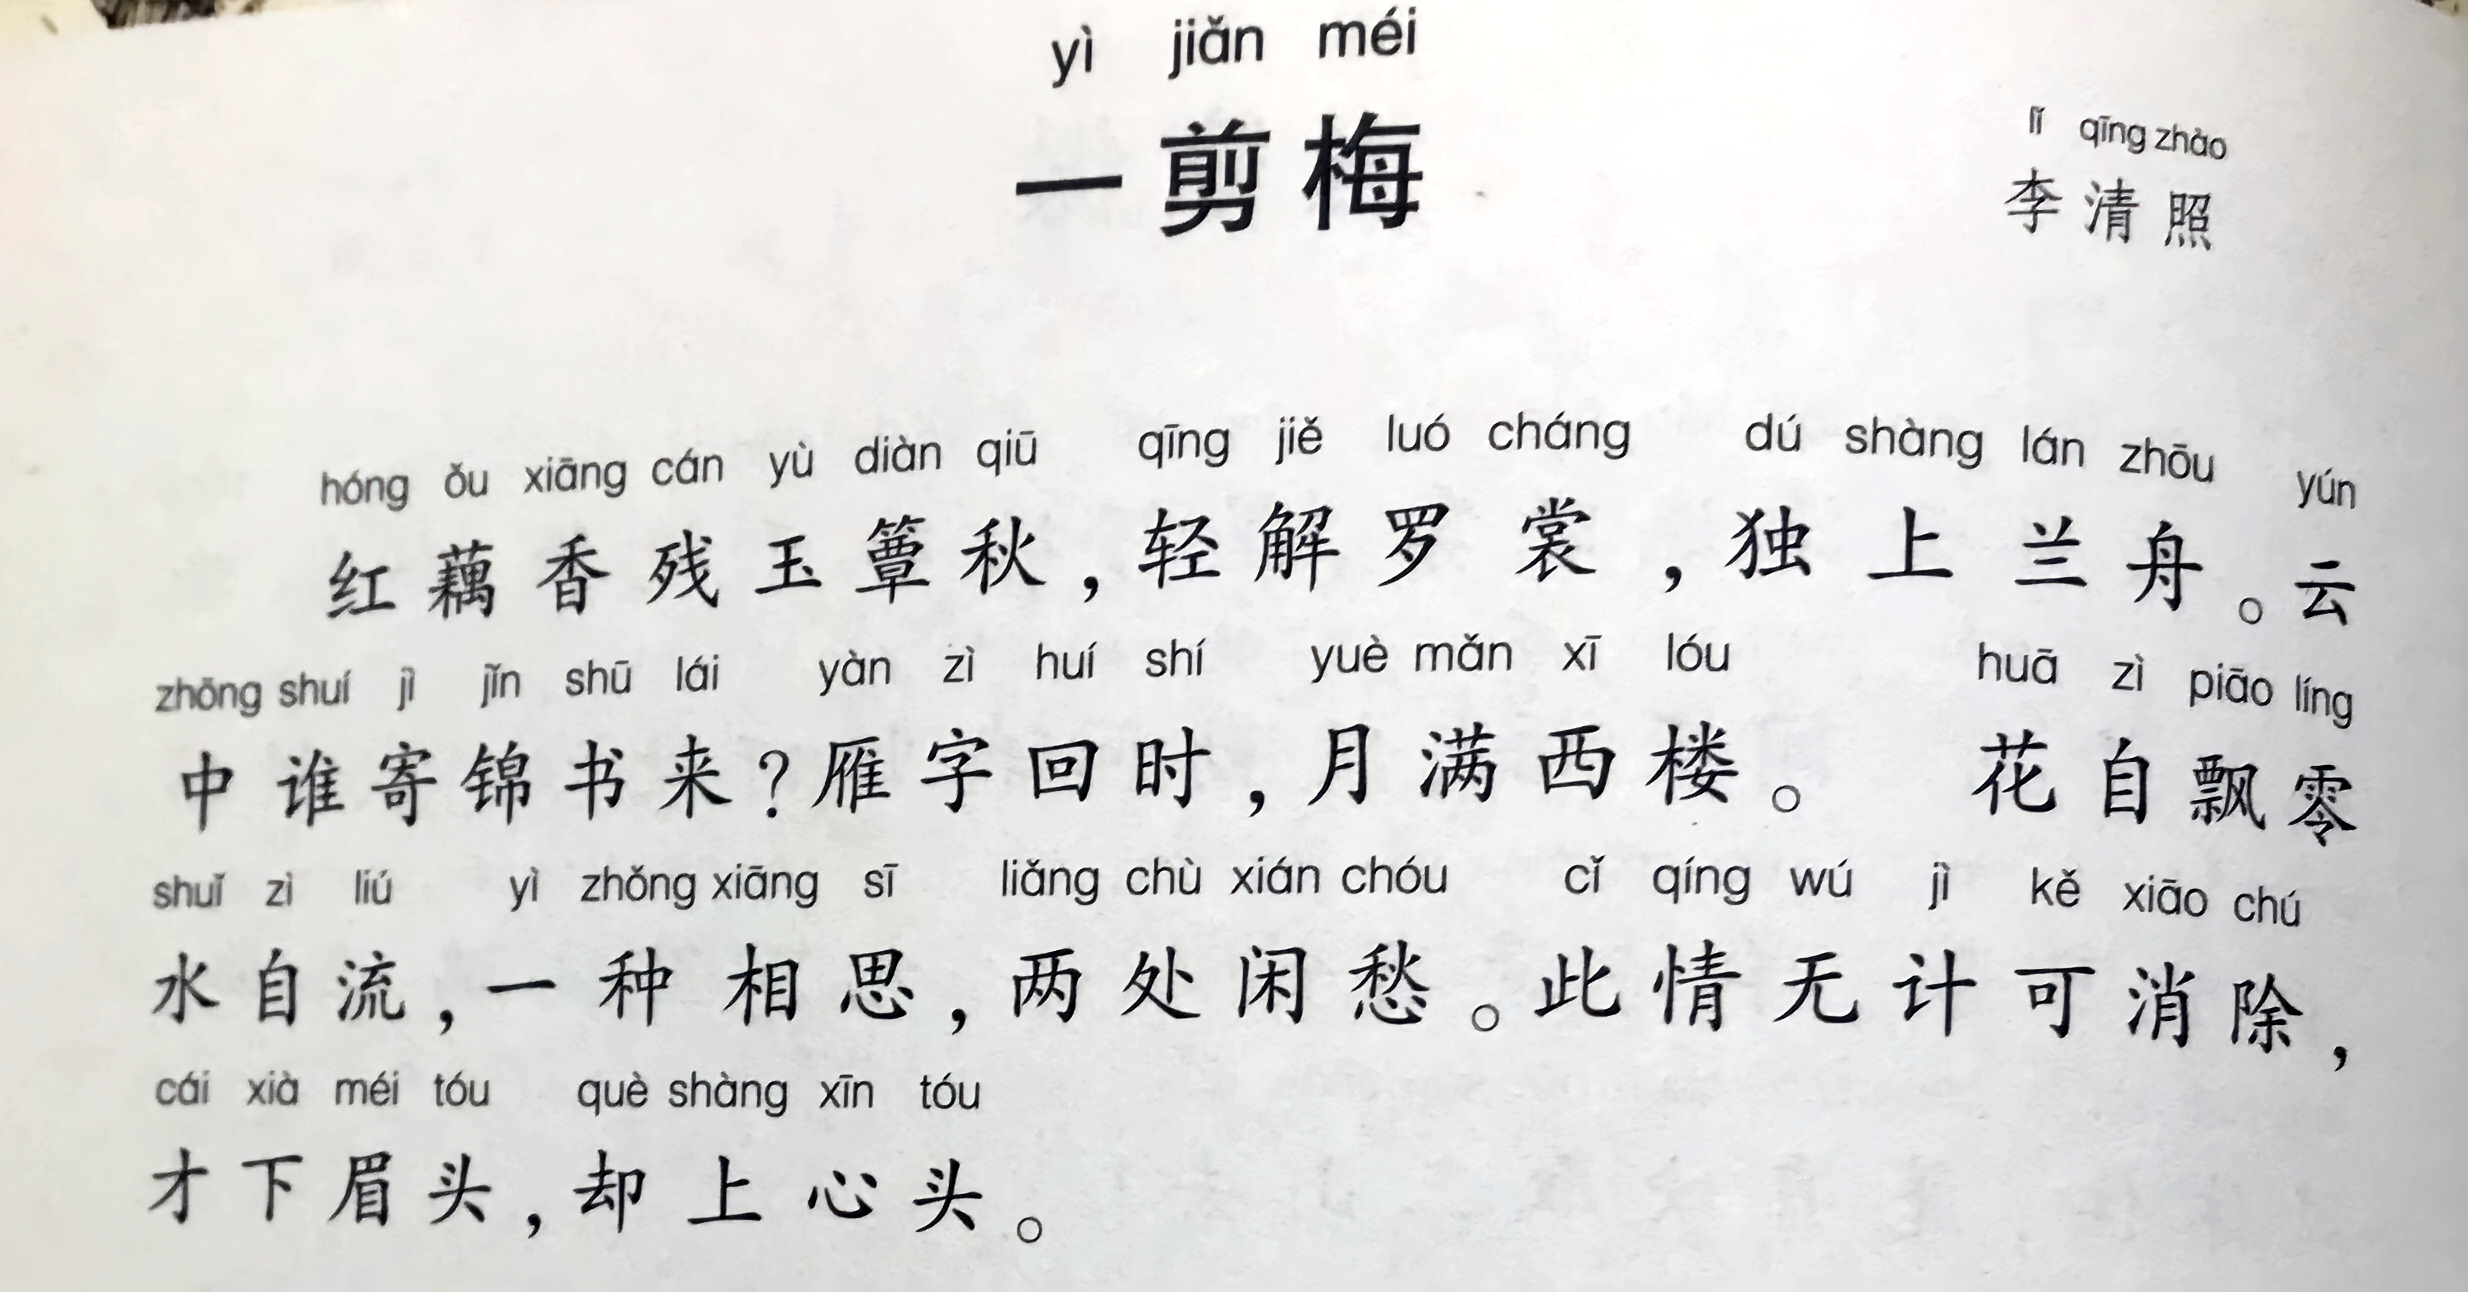 yì jiǎn méi
一剪梅
lǐ qīng zhào
李清照
hóng ǒu xiāng cán yù diàn qiū qīng jiě luó cháng dú shàng lán zhōu yún
红藕香残玉簟秋，轻解罗裳，独上兰舟。云
zhōng shuí jì jǐn shū lái yàn zì huí shí yuè mǎn xī lóu huā zì piāo líng
中谁寄锦书来？雁字回时，月满西楼。 花自飘零
shuǐ zì liú yì zhǒng xiāng sī liǎng chù xián chóu cǐ qíng wú jì kě xiāo chú
水自流，一种相思，两处闲愁。此情无计可消除，
cái xià méi tóu què shàng xīn tóu
才下眉头，却上心头。